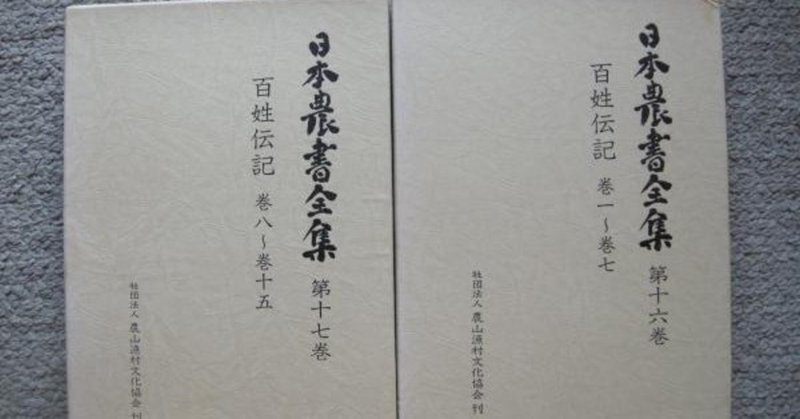 日本農書全集 第十六巻
百姓伝記 巻一～巻七
社団法人 農山漁村文化協会 刊
日本農書全集 第十七巻
百姓伝記 巻八～巻十五
社団法人 農山漁村文化協会 刊